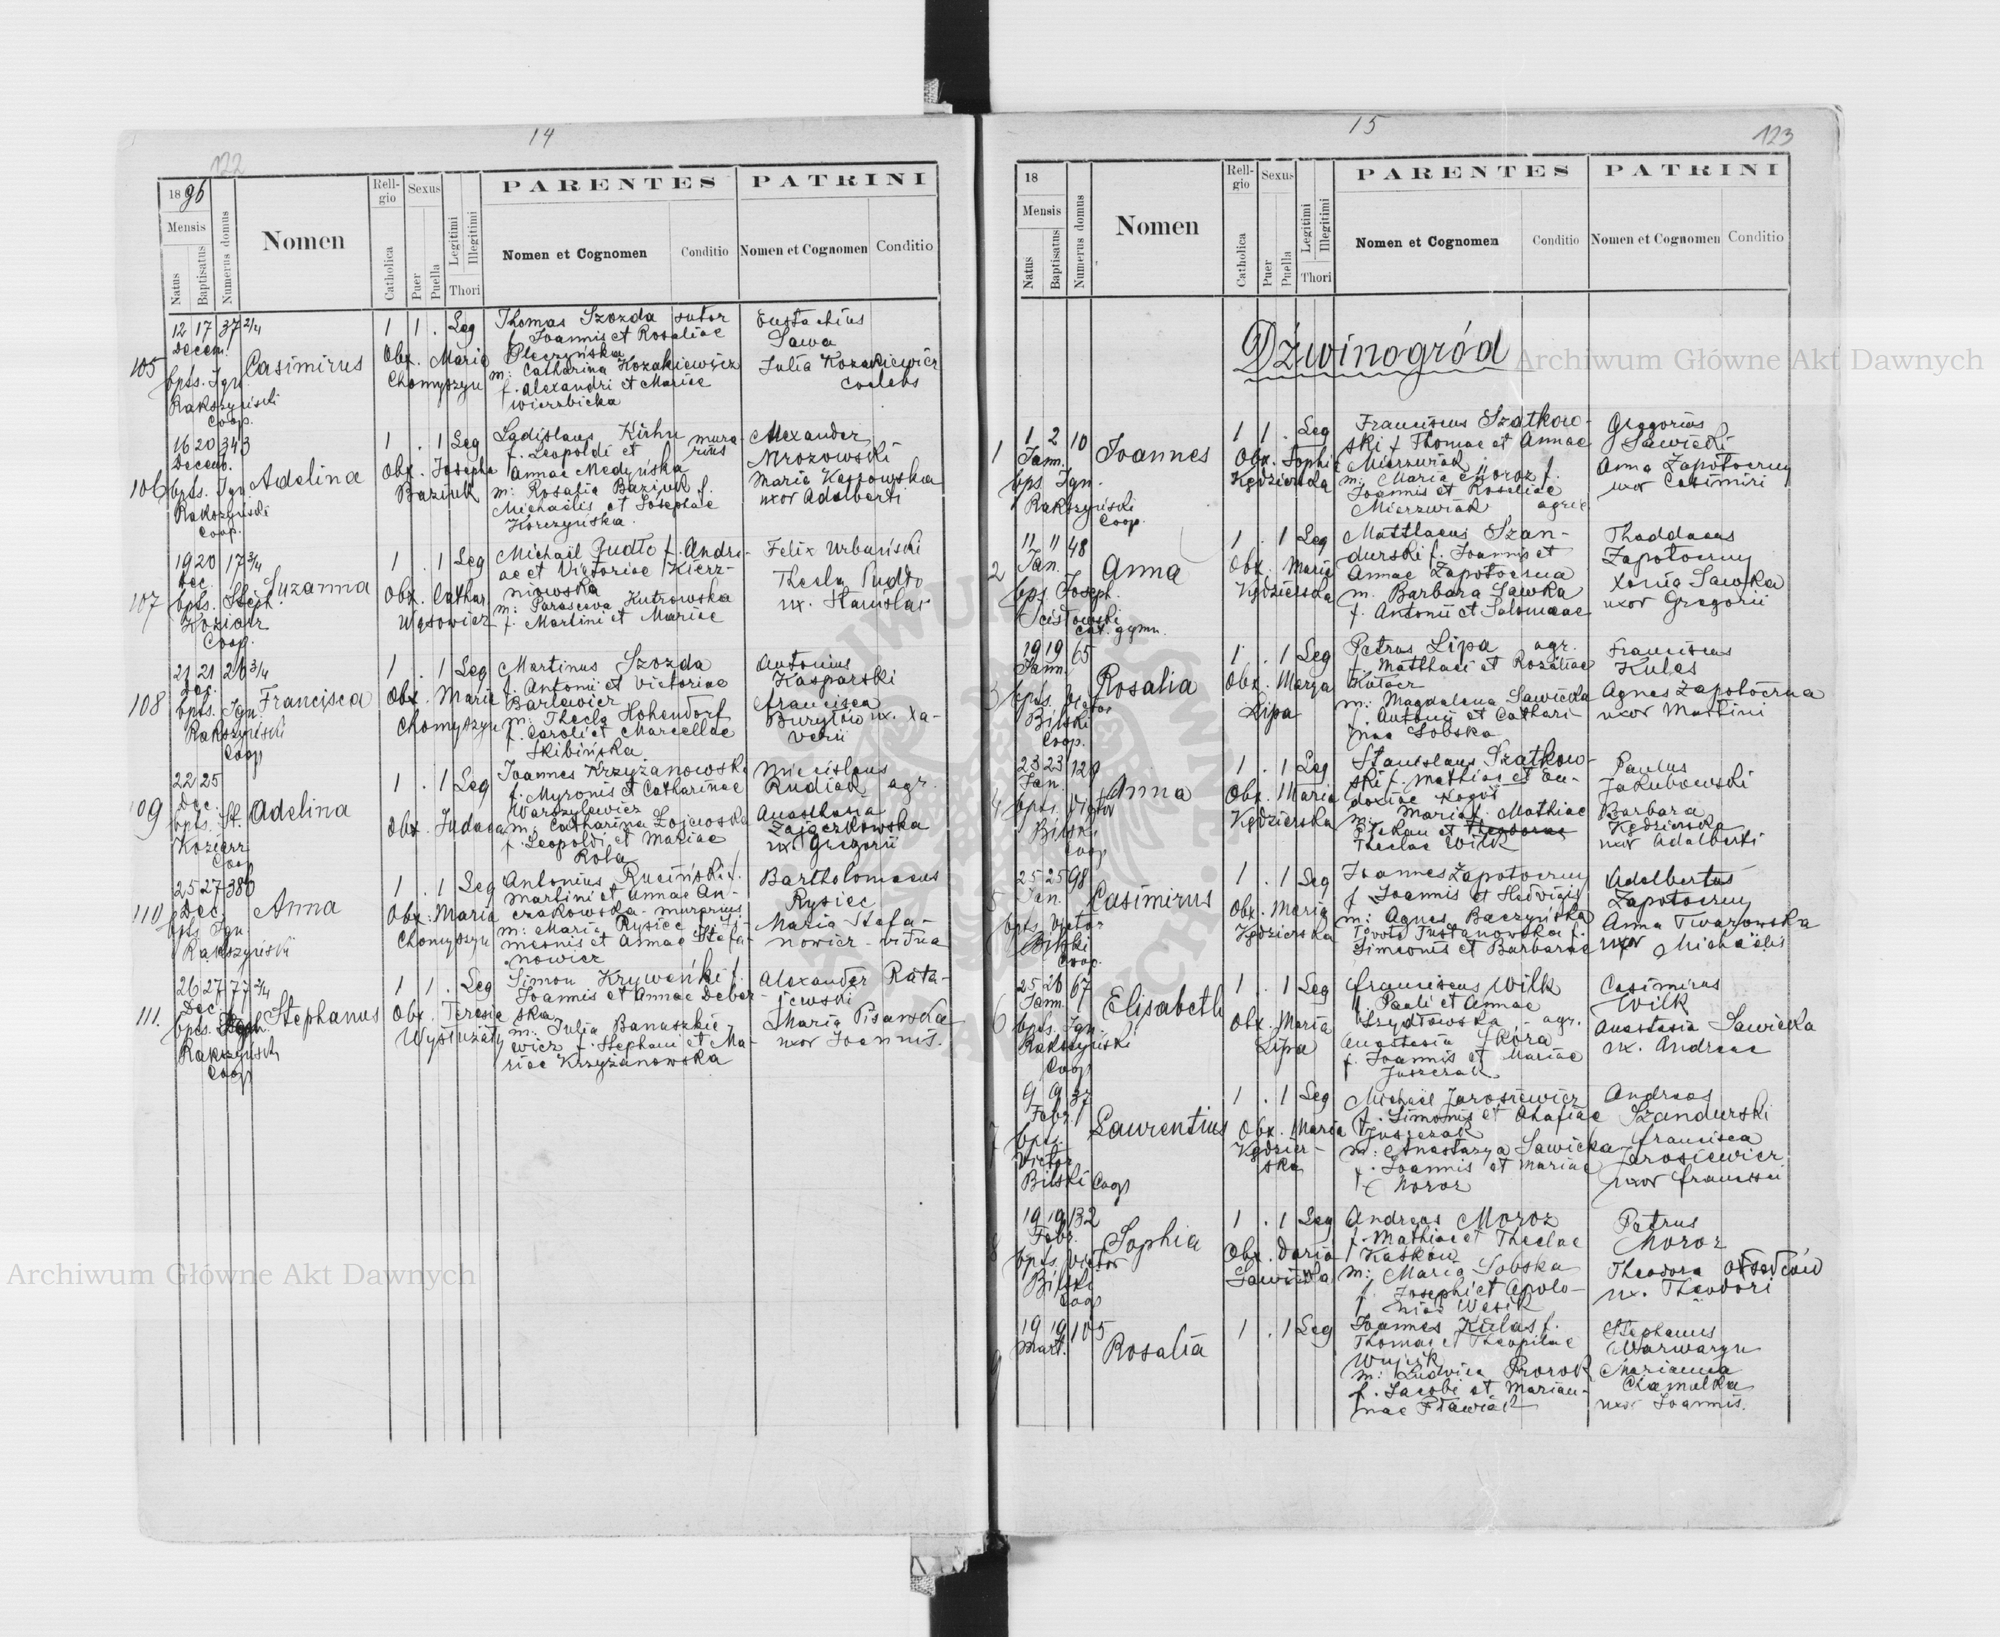 14
122
1896
Mensis
Natus
Baptisatus
Numerus domus
Nomen
Religio
Catholica
Sexus
Puer
Puella
Legitimi
Illegitimi
Thori
PARENTES
Nomen et Cognomen
Conditio
PATRINI
Nomen et Cognomen
Conditio
105
12 17 37 2/4
Decem.
bpts. Ign.
Rakszyński
Coop.
Casimirus
1 1 . Leg
Obx. Maria
Chomyszyn
Thomas Szozda sutor
f. Joannis et Rosaliae
Pleczyńska
m: Catharina Kozakiewicz
f. Alexandri et Mariae
Wierzbicka
Eustachius
Sawa
Julia Kozakiewicz
coelebs
106
16 20 343
Decemb.
bpts. Ign.
Rakszyński
Coop.
Adelina
1 . 1 Leg
Obx. Josepha
Baziuk
Ladislaus Kuhn murarius
f. Leopoldi et
Annae Medyńska
m: Rosalia Baziuk f.
Michaelis et Josephae
Korczyńska
Alexander
Mrozowski
Maria Kossowska
uxor Adalberti
107
19 20 17 3/4
Dec.
bpts. Steph.
Koziarz
Coop.
Suzanna
1 . 1 Leg
Obx. Cathar
Wąsowicz
Michail Pudło f. Andreae
et Victoriae Kierzniowska
m: Parasceva Kutrowska
f. Martini et Mariae
Felix Urbański
Thecla Pudło
ux. Stanislai
108
21 21 26 3/4
Dec.
bpts. Ign.
Rakszyński
Coop
Francisca
1 . 1 Leg
Obx. Maria
Chomyszyn
Martinus Szozda
f. Antonii et Victoriae
Barlewicz
m: Thecla Hohendorf
f. Caroli et Marcellae
Skibińska
Antonius
Kasparski
Francisca
Burytów ux. Xaverii
109
22 25
Dec.
bpts. St.
Koziarz
Coop
Adelina
1 . 1 Leg
Obx. Judasa
Joannes Krzyżanowski
f. Myronis et Catharinae
Warszylewicz
m: Catharina Łojewska
f. Leopoldi et Mariae
Rola
Miecislaus
Rudiak agr.
Anasthasia
Zajączkowska
ux. Gregorii
110
25 27 386
Dec.
bpts Ign
Rakszyński
Anna
1 . 1 Leg
Obx: Maria
Chomyszyn
Antonius Ruciński f.
Martini et Annae Anczakowska - murarius
m: Maria Rysiec f. Simeonis et Annae Stefanowicz
Bartholomaeus
Rysiec
Maria Stefanowicz - vidua
111.
26 27 77 2/4
Dec.
bpts. Ign.
Rakszyński
Coop
Stephanus
1 1 . Leg
Obx. Teresia
Wysłużały
Simon Kryweńki f.
Joannis et Annae Deberska
m: Julia Banaszkiewicz f. Stephani et Mariae Krzyżanowska
Alexander Ratajewski
Maria Pisawska
uxor Joannis.
15
123
18
Mensis
Natus
Baptisatus
Numerus domus
Nomen
Religio
Catholica
Sexus
Puer
Puella
Legitimi
Illegitimi
Thori
PARENTES
Nomen et Cognomen
Conditio
PATRINI
Nomen et Cognomen
Conditio
Dźwinogród
1
1 2 10
Jann.
bps Ign.
Rakszyński
Coop.
Joannes
1 1 . Leg
Obx. Sophia
Kędzierska
Franciscus Szatkowski f. Thomae et Annae
Mierzwiak
m: Maria Moroz f.
Joannis et Rosaliae
Mierzwiak agric
Gregorius
Sawicki
Anna Zapotoczny
uxor Casimiri
2
11 11 48
Jan.
bps. Joseph.
Scisłowski
cat. gymn.
Anna
1 . 1 Leg
Obx. Maria
Kędzierska
Matthaeus Szandurski f. Joannis et
Annae Zapotoczna
m. Barbara Sawka
f. Antonii et Salomeae
Thaddaeus
Zapotoczny
Xenia Sawka
uxor Gregorii
3
19 19 65
Jann.
bpts. Victor
Bilski
Coop.
Rosalia
1 . 1 Leg
Obx. Marya
Lipa
Petrus Lipa agr.
f. Matthaei et Rozaliae
Kołacz
m: Magdalena Sawicka
f. Antonii et Catharinae Sobska
Franciscus
Kulas
Agnes Zapotoczna
uxor Martini
4
23 23 129
Jan.
bpts. Victor
Bilski
Coop
Anna
1 . 1 Leg
Obx. Maria
Kędzierska
Stanislaus Szatkowski f. Mathiae et Eudoxiae Kogut
m: Maria f. Mathiae
Theclae Wilk
Paulus
Jakubowski
Barbara
Kędzierska
uxor Adalberti
5
25 25 98
Jan.
bpts. Victor
Bilski
Coop.
Casimirus
1 . 1 Leg
Obx. Maria
Kędzierska
Joannes Zapotoczny
f. Joannis et Hedvigis
m: Agnes Baczyńska
f.
Simeonis et Barbarae
Adalbertus
Zapotoczny
Anna Twarowska
uxor Michaelis
6
25 26 67
Jann.
bpts. Ign.
Rakszyński
Coop
Elisabeth
1 . 1 Leg
Obx. Maria
Lipa
Franciscus Wilk
f. Pauli et Annae
Szydłowska - agr.
Anastasia Skóra
f. Joannis et Mariae
Juszczak
Casimirus
Wilk
Anastasia Sawicka
ux. Andreae
7
9 9 37
Febr
bpts.
Victor
Bilski Coop
Laurentius
1 . 1 Leg
Obx. Maria
Kędzierska
Michael Jarosiewicz
f. Simonis et Ahafiae
Juszczak
m: Anastazya Sawicka
f. Joannis et Mariae
Moroz
Andreas
Szandurski
Francisca
Jarosiewicz
uxor Francisci
8
19 19 132
Febr.
bpts. Victor
Bilski
Coop
Sophia
1 . 1 Leg
Obx. Daria
Sawicka
Andreas Moroz
f. Mathiae et Theclae
Kasków
m: Maria Sobska
f. Josephi et Apoloniae Wąsik
Petrus
Moroz
Theodora
ux. Theodori
9
19 19 105
Mart.
Rosalia
1 . 1 Leg
Joannes Kulas f.
Thomae et Theophilae
Wujcik
m: Ludwica Prorok
f. Jacobi et Mariannae Pławiak
Stephanus
Warwaryn
Marianna
Chamulka
uxor Joannis.
Archiwum Główne Akt Dawnych
Archiwum Główne Akt Dawnych